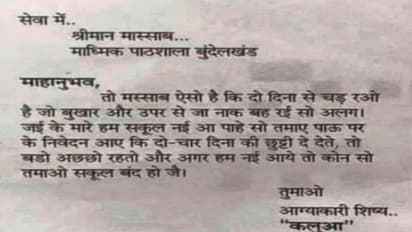 सेवा में..
श्रीमान मास्साब...
माध्मिक पाठशाला बुंदेलखंड
माहानुभव,
तो मस्साब ऐसो है कि दो दिना से चड़ रओ
है जो बुखार और उपर से जा नाक बह रई सो अलग।
जई के मारे हम सकूल नई आ पाहे सो तमाए पाऊ पर
के निवेदन आए कि दो-चार दिना की छुट्टी दे देते, तो
बडो अछ्छो रहतो और अगर हम नई आये तो कोन सो
तमाओ सकूल बंद हो जै।
तुमाओ
आग्याकारी शिष्य..
"कलुआ"